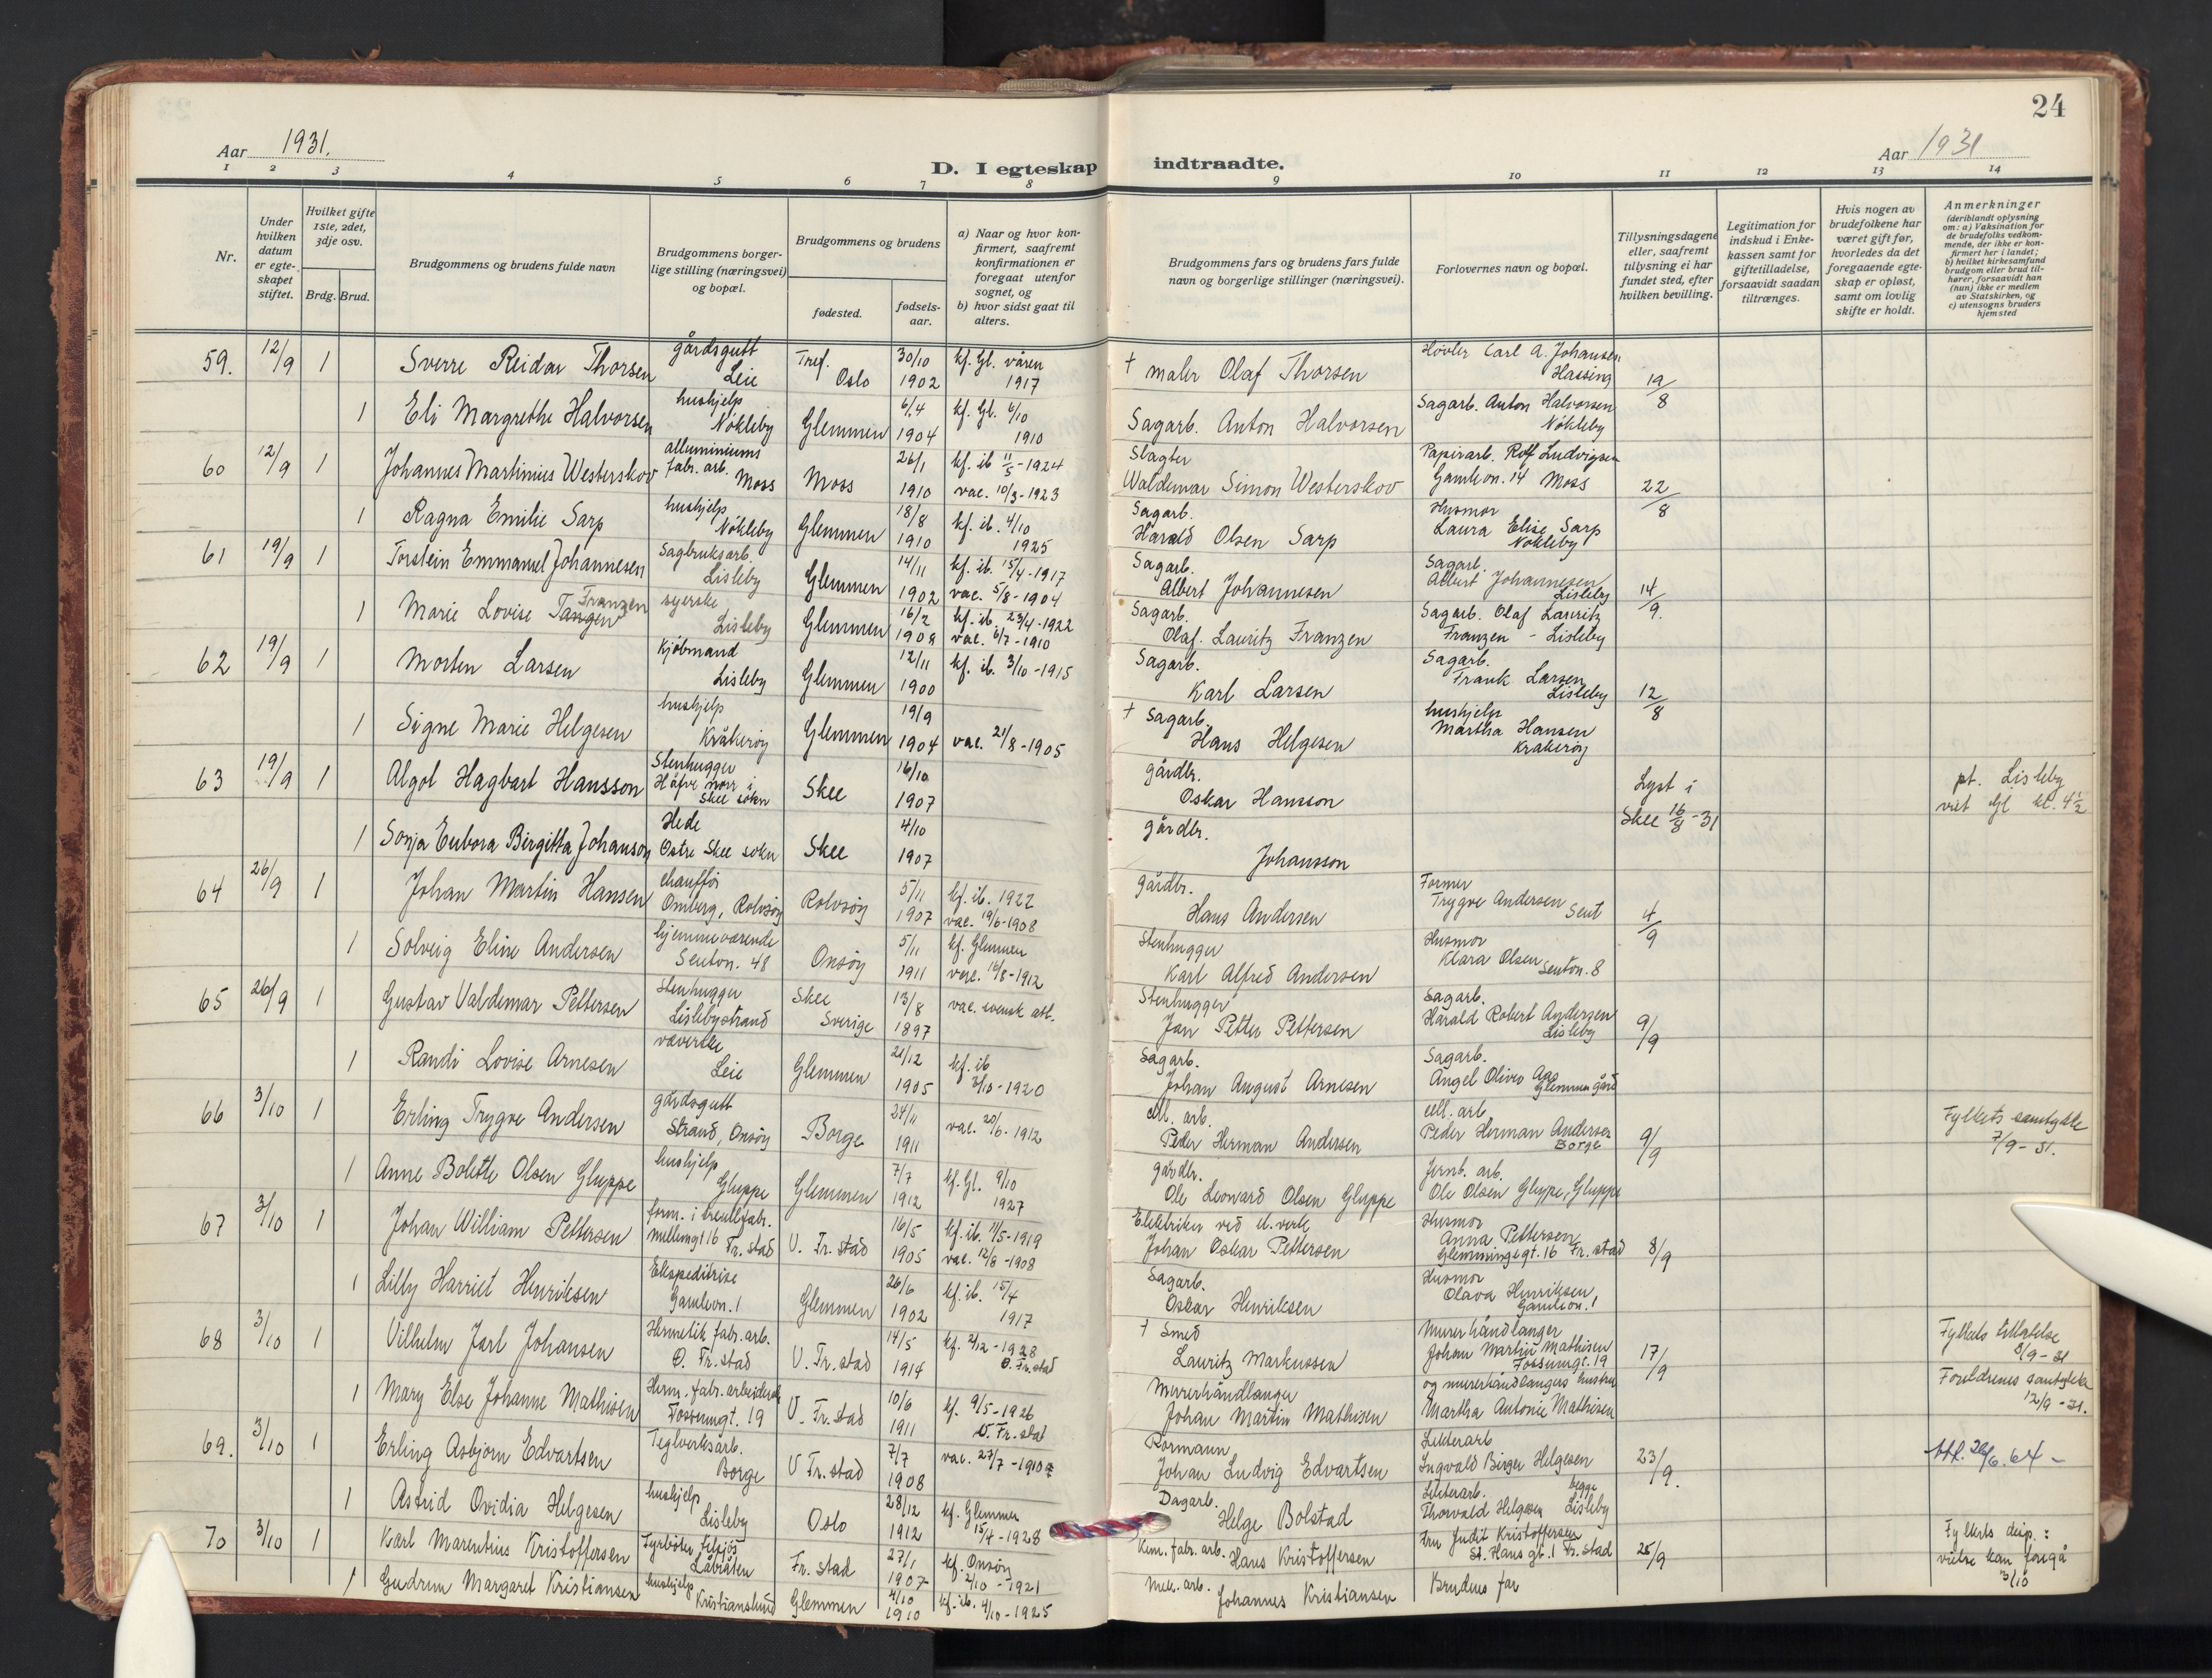 24
Aar 1931.
D. I egteskap indtraadte.
Aar 1931
1 2 3 4 5 6 7 8 9 10 11 12 13 14
Nr.
Under hvilken datum er egte-skapet stiftet.
Hvilket gifte 1ste, 2det, 3dje osv.
Brdg. Brud.
Brudgommens og brudens fulde navn
Brudgommens borger-lige stilling (næringsvei) og bopæl.
Brudgommens og brudens
fødested.
fødsels-aar.
a) Naar og hvor kon-firmert, saafremt konfirmationen er foregaat utenfor sognet, og
b) hvor sidst gaat til alters.
Brudgommens fars og brudens fars fulde navn og borgerlige stillinger (næringsvei).
Forlovernes navn og bopæl.
Tillysningsdagene eller, saafremt tillysning ei har fundet sted, efter hvilken bevilling.
Legitimation for indskud i Enke-kassen samt for giftetilladelse, forsaavidt saadan tiltrænges.
Hvis nogen av brudefolkene har været gift før, hvorledes da det foregaaende egte-skap er opløst, samt om lovlig skifte er holdt.
Anmerkninger (deriblandt oplysning om: a) Vaksination for de brudefolks vedkom-mende, der ikke er kon-firmert her i landet; b) hvilket kirkesamfund brudgom eller brud til-hører, forsaavidt han (hun) ikke er medlem av Statskirken, og c) utensogns bruders hjemsted
59. 12/9 1 Sverre Reidar Thorsen gårdsgutt Leie Tref. Oslo 30/10 1902 kf. Gl. våren 1917 † maler Olaf Thorsen Høvler Carl A. Johansen Hassing 19/8
1 Eli Margrethe Halvorsen hushjelp Nøkleby Glemmen 6/4 1904 kf. Gl. 6/10 1910 Sagarb. Anton Halvorsen Sagarb. Anton Halvorsen Nøkleby
60 12/9 1 Johannes Martinius Westerskov alluminiums fabr. arb. Moss Moss 26/1 1910 kf. ib 11/5-1924 vac. 10/3-1923 Slagter Waldemar Simon Westerskov Papirarb. Rolf Ludvigsen Gamleon. 14 Moss 22/8
1 Ragna Emilie Sarp hushjelp Nøkleby Glemmen 18/8 1910 kf. ib. 4/10 1925 Sagarb. Harald Olsen Sarp Husmor Laura Elise Sarp Nøkleby
61 19/9 1 Torstein Emmanuel Johannesen Sagbruksarb. Lisleby Glemmen 14/11 1902 kf. ib. 15/4-1917 vac. 5/8-1904 Sagarb. Albert Johannesen Sagarb. Albert Johannesen Lisleby 14/9.
1 Marie Lovise Tangen Franzen syerske Lisleby Glemmen 16/2 1908 kf. ib. 23/4-1922 vac. 6/7-1910 Sagarb. Olaf. Lauritz Franzen Sagarb. Olaf Lauritz Franzen - Lisleby
62 19/9 1 Morten Larsen Kjøbmand Lisleby Glemmen 12/11 1900 kf. ib. 3/10-1915 Sagarb. Karl Larsen Sagarb. Frank Larsen Lisleby 12/8
1 Signe Marie Helgesen hushjelp Kråkerøy Glemmen 19/9 1904 vac. 21/8-1905 † Sagarb. Hans Helgesen hushjelp Martha Hansen Kråkerøy
63 19/9 1 Algol Hagbart Hansson Stenhugger Håfve norr i Skee sokn Skee 16/10 1907 gårdbr. Oskar Hansson Lyst i Skee 16/8-31 pt. Lisleby viet Gl kl. 4½
1 Sonja Eubora Birgitta Johanson Hede Östre Skee sokn Skee 4/10 1907 gårdbr. Johansson
64 26/9 1 Johan Martin Hansen chauffør Omberg, Rolvsøy Rolvsøy 5/11 1907 kf. ib. 1922 vac. 19/6-1908 gårdbr. Hans Andersen Former Trygve Andersen Seut 4/9
1 Solveig Eline Andersen hjemmeværende Seuton. 48 Onsøy 5/11 1911 kf. Glemmen vac. 16/8-1912 Stenhugger Karl Alfred Andersen Husmor Klara Olsen Seuton. 8
65 26/9 1 Gustav Valdemar Pettersen Stenhugger Lislebystrand Skee Sverige 13/8 1897 vac. svensk att. Stenhugger Jan Petter Pettersen Sagarb. Harald Robert Andersen Lisleby 9/9
1 Randi Lovise Arnesen væverske Leie Glemmen 21/12 1905 kf. ib 3/10-1920 Sagarb. Johan August Arnesen Sagarb. Angel Olivo Aas Glemmen gård
66 3/10 1 Erling Trygve Andersen gårdsgutt Strand, Onsøy Borge 24/11 1911 vac. 20/6-1912 cell. arb. Peder Herman Andersen cell. arb Peder Herman Andersen Borge 9/9 Fylkets samtykke 7/9-31.
1 Anne Bolette Olsen Gluppe hushjelp Gluppe Glemmen 7/7 1912 kf. Gl. 9/10 1927 gårdbr. Ole Leonard Olsen Gluppe Jernb. arb. Ole Olsen Gluppe, Gluppe
67 3/10 1 Johan William Pettersen form. i treullfabr. mellemgt 16 Fr. stad V. Fr. stad 16/5 1905 kf. ib. 11/5-1919 vac. 12/8-1908 Elektriker ved el. verk Johan Oskar Pettersen Husmor Anna Pettersen Glemmingegt. 16 Fr. stad 8/9
1 Lilly Harriet Henriksen Ekspeditrise Gamleon. 1 Glemmen 26/6 1902 kf. ib. 15/4 1917 Sagarb. Oskar Henriksen Husmor Olava Henriksen Gamleon. 1
68 3/10 1 Vilhelm Jarl Johansen Hermetik fabr. arb. Ø. Fr. stad V. Fr. stad 14/5 1914 kf. 2/12-1928 Ø. Fr. stad † Smed Lauritz Markussen Murerhåndlanger Johan Martin Mathisen Fossumgt. 19 17/9 Fylkets tillatelse 8/9-31
1 Mary Else Johanne Mathisen Herm. fabr. arbeiderske Fossumgt. 19 V. Fr. stad 10/6 1911 kf. 9/5-1926 V. Fr. stad Murerhåndlanger Johan Martin Mathisen og murerhåndlangers hustru Martha Antonie Mathisen Foreldrenes samtykke 12/9-31.
69. 3/10 1 Erling Asbjørn Edvartsen Teglverksarb. Borge V Fr. stad 7/7 1908 vac. 27/7-1910 Rormann Johan Ludvig Edvartsen Lekterarb Ingvald Birger Helgesen 23/9. Att. 26/6.64 -
1 Astrid Ovidia Helgesen hushjelp Lisleby Oslo 28/12 1912 kf. Glemmen 15/4-1928 Dagarb. Helge Bolstad Lekterarb. Thorvald Helgesen begge Lisleby
70 3/10 1 Karl Marentius Kristoffersen Fyrbøter Låbråten Fr. stad 27/1 1907 kf. Onsøy 2/10-1921 Kem. fabr. arb. Hans Kristoffersen Fru Judit Kristoffersen St. Hans gt. 1 Fr. stad 25/9 Fylkets disp.: vielse kan foregå 3/10
1 Gudrun Margaret Kristiansen hushjelp Kristianslund Glemmen 4/10 1910 kf. ib. 4/10-1925 Mek. arb. Johannes Kristiansen Brudens far